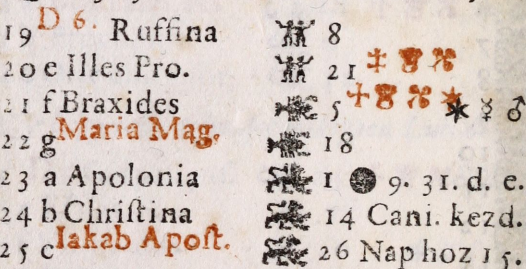 19 D 6. Ruffina 8
20 e Illes Pro. 21
21 f Braxides 5 ✶ ☿ ♂
22 g Maria Mag. 18
23 a Apolonia 1 ● 9. 31. d. e.
24 b Chriſtina 14 Cani. kezd.
25 c Iakab Apoſt. 26 Nap hoz 15.